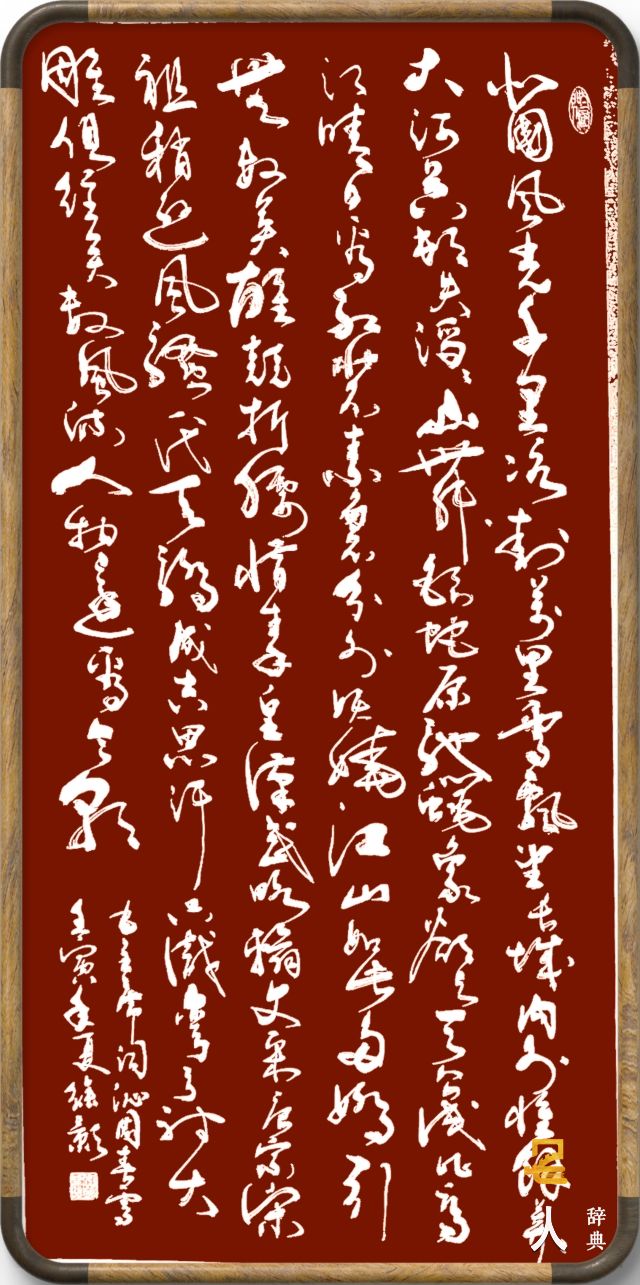 北國風光千里冰封萬里雪飄望長城內外惟餘莽
大河上下頓失滔滔山舞銀蛇原馳蠟象欲與天公試比高
須晴日看紅裝素裹分外妖嬈江山如此多嬌引
無數英雄競折腰惜秦皇漢武略輸文采唐宗宋
祖稍遜風騷一代天驕成吉思汗只識彎弓射大
雕俱往矣數風流人物還看今朝
毛主席詞沁園春雪
壬寅年夏徐
名人
辞典